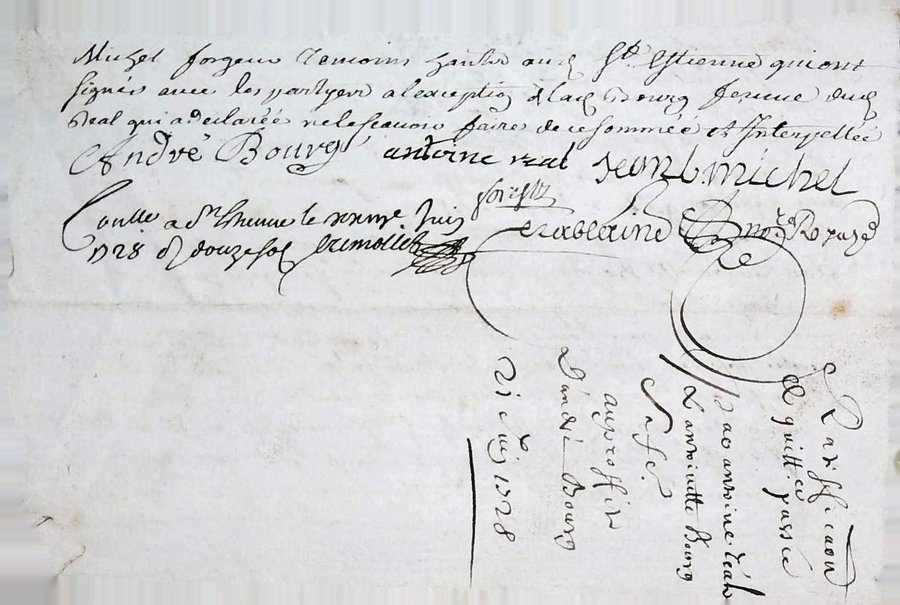 Michel forgeur temoins habitr audt St. Estienne qui ont
signés avec les partyes a lexception de lade Bourg femme dud
Real qui a declarée ne le scavoir faire de ce sommée et Interpellée
André Bourg antoine real Jean michel
Joseph
Conlle a St Etienne le juin
1728 d douze sols
crabeaine no.re Royal
Rattifficaon
et quittce passée
par antoine Real et
antoinette Bourg
sa fe.
au proffit
d'andré Bourg
21 Juin 1728